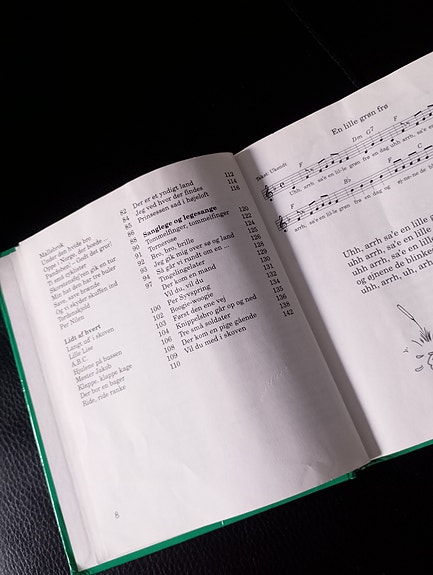 Møllebrok 82
Under den hvide bro 84
Oppe i Norge, der boede ... 85
Pandeben - Godt det gror! 86
Ti små cyklister 88
Skorstensfejeren gik en tur 90
Min hat den har tre buler 91
Save, save brænde 92
Og vi skyder skuffen ind 93
Tordenskjold 94
Per Nilen 97
Lidt af hvert
Langt ud' i skoven 100
Lille Lise 102
A.B.C. 103
Hjulene på bussen 104
Mester Jakob 106
Klappe, klappe kage 108
Der bor en bager 109
Ride, ride ranke 110
Der er et yndigt land 112
Jeg ved hvor der findes 114
Prinsessen sad i højeloft 116
Sanglege og legesange
Tommelfinger, tommelfinger 120
Tornerose 122
Bro, bro, brille 124
Jeg gik mig over sø og land 125
Så går vi rundt om en ... 126
Tingelingelater
Der kom en mand
Vil du, vil du
Per Syvspring
Boogie-woogie
Først den ene vej
Knippelsbro går op og ned
Tre små soldater
Der kom en pige gående 138
Vil du med i skoven 142
8
En lille grøn frø
Tekst: Ukendt
F Dm G7
Uhh, arrh, sa'e en lille grøn frø en dag uhh arrh, sa'e
F Bb F C
arrh, sa'e en lille grøn frø en dag og øjnene de
Uhh, arrh sa'e en lille
uhh arrh, sa'e en lille
uhh arrh, sa'e en lille
og øjnene de blinke
uhh arrh, uh, arrh,